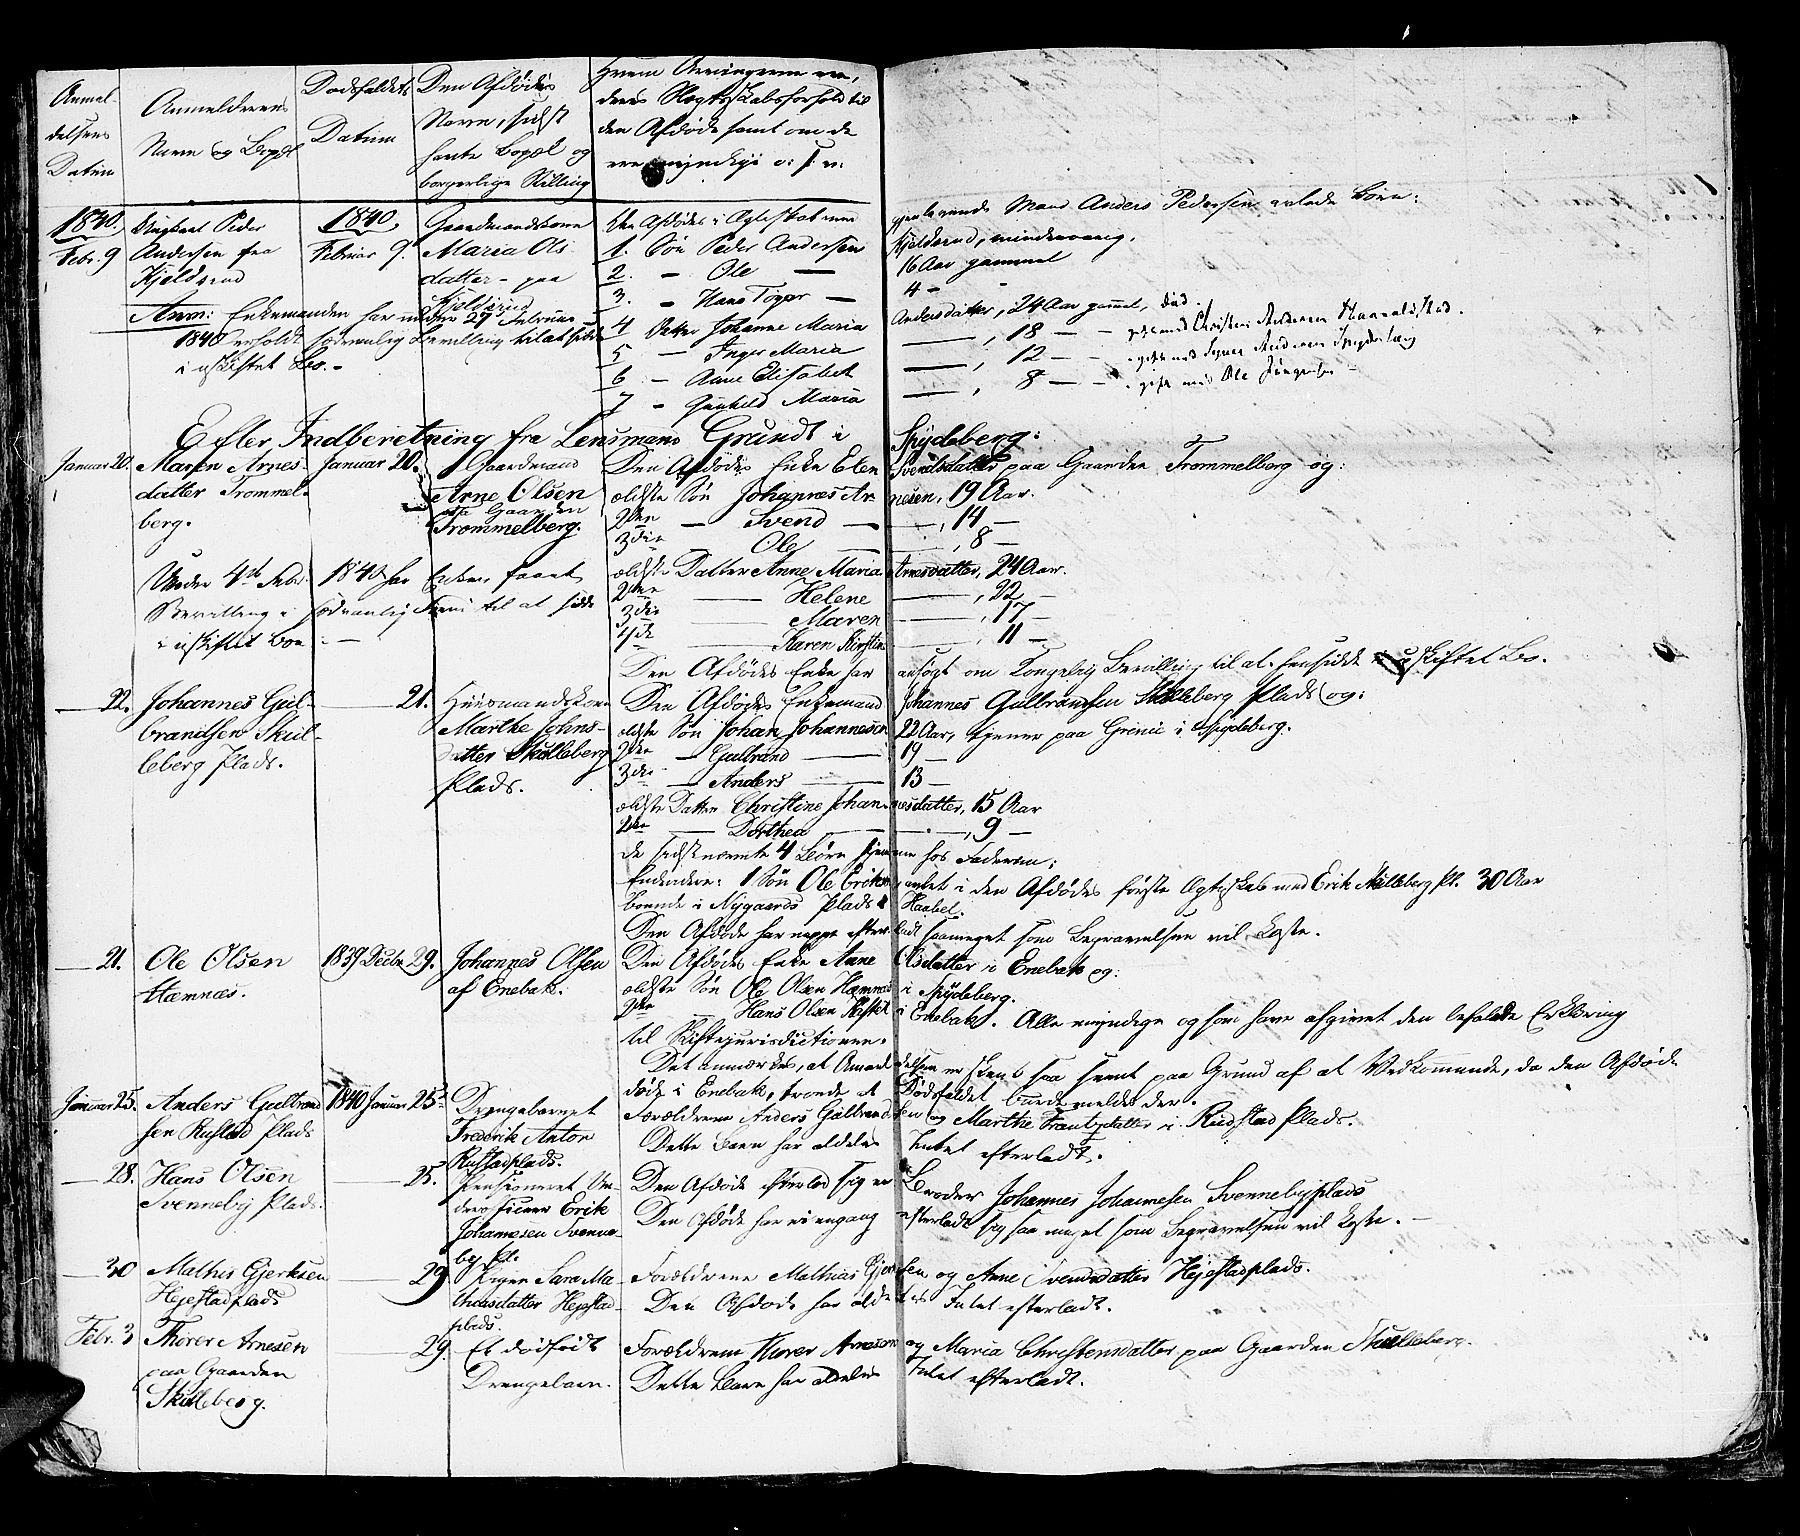 Anmel-
delsens
Datum
Anmelderens
Navn og Bopæl
Dødsfaldets
Datum
Den Afdødes
Navn, sidst
havte Bopæl og
borgerlige Stilling
Hvem Arvingerne ere,
deres Slægtskabsforhold til
den Afdøde samt om de
ere myndige o: s: v:
1840.
Febr. 9
Ungkarl Peder
Andersen fra
Kjeldsrud
1840.
Februar 9.
Gaardmandskone
Maria Ols-
datter paa
Kjeldsrud
Den Afdødes i Ægteskab med
gjenlevende Mand Anders Pedersen avlede Børn:
1. Søn Peder Andersen Kjeldsrud, mindreaarig.
2. — Ole — 16 Aar gammel
3. — Hans Toger — 4 —
4 Datter Johanne Maria Andersdatter, 24 Aar gammel, død.
5 — Inger Maria — , 18 — — gift med Christen Andersen
6 — Anne Elisabeth — , 12 — — gift med Andersen
7 — Gunhild Maria — , 8 — — gift med Ole
Anm: Enkemanden har under 27 Februar
1840 erholdt sædvanlig Bevilling til at sidde
i uskiftet Bo. –
Efter Indberetning fra Lensmand Grundt i Spydeberg:
Januar 20. Maren Arnes-
datter Trommel-
berg.
Januar 20.
Gaardmand
Arne Olsen
paa Gaarden
Trommelberg.
Den Afdødes Enke Elen Svendsdatter paa Gaarden Trommelberg og:
ældste Søn Johannes Arnesen, 19 Aar.
2den — Svend — — , 14 —
3die — Ole — , 8 —
ældste Datter Anne Maria Arnesdatter, 24 Aar.
2den — Helene — , 22 —
3die — Maren — , 17 —
4de — Karen Kirstine — , 11 —
Den Afdødes Enke har ansøgt om Kongelig Bevilling til at hensidde i uskiftet Bo.
Under 4de Febr. 1840 har Enken faaet
Bevilling i sædvanlig Form til at sidde
i uskiftet Boe —
— 22. Johannes Gul-
brandsen Skul-
leberg Plads.
— 21.
Huusmandskone
Marthe Johns-
datter Skulleberg
Plads.
Den Afdødes Enkemand Johannes Gulbrandsen Skulleberg Plads og:
ældste Søn Johan Johannesen 22 Aar, tjener paa Grinie i Spydeberg.
2den — Gulbrand — 19 —
3die — Anders — 13 —
ældste Datter Christine Johannesdatter, 15 Aar
2den — Dorthea — — , 9 —
de sidstnævnte 4 Børn hjemme hos Faderen;
Endvidere: 1 Søn Ole Eriksen, avlet i den Afdødes første Ægteskab med Erik Skulleberg Pl. 30 Aar
boende i Nygaards Plads i Haabel.
Den Afdøde har neppe efterladt saameget som Begravelsen vil koste.
— 21. Ole Olsen
Hæmnæs.
1839 Decbr 29.
Johannes Olsen
af Enebak.
Den Afdødes Enke Anne Olsdatter i Enebak og:
ældste Søn Ole Olsen Hæmnæs i Spydeberg.
2den — Hans Olsen i Enebak. Alle myndige og som have afgivet den befalede Erklæring
til Skiftejurisdictionen.
Det anmærkes, at Anmeldelsen er skeet saa seent paa Grund af at Vedkommende, da den Afdøde
døde i Enebak, troede at Dødsfaldet burde meldes der.
Januar 25. Anders Gulbrand
sen Rustad Plads
1840 Januar 25
Drengebarnet
Frederik Anton
Rustadplads.
Forældrene Anders Gulbrandsen og Marthe Frantzdatter i Rudstad Plads.
Dette Barn har aldeles Intet efterladt.
— 28. Hans Olsen
Svenneby Plads.
— 25.
Pensioneret Un-
derofficeer Erik
Johannesen Svenne-
by Pl.
Den Afdøde efterlod sig en Broder Johannes Johannesen Svennebyplads
Den Afdøde har ei engang efterladt sig saa meget som Begravelsen vil koste. –
— 30 Mathis Gjerksen
Hejestadplads
— 29
Pigen Sara Ma-
thiasdatter Hejestad-
plads.
Forældrene Mathias Gjerksen og Anne Svendsdatter Hejestadplads.
Den Afdøde har aldeles Intet efterladt.
Febr. 3 Thorer Arnesen
paa Gaarden
Skulleberg.
— 29.
Et dødfødt
Drengebarn.
Forældrene Thorer Arnesen og Maria Christensdatter paa Gaarden Skulleberg.
Dette Barn har aldeles Intet efterladt.